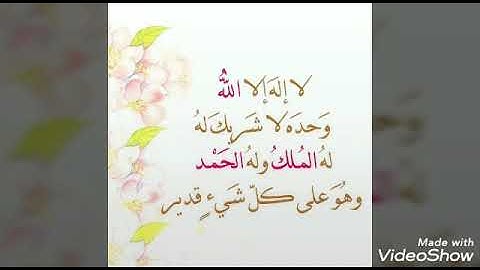 لا إله إلا الله
وَحدَه لا شَريكَ لهُ
لهُ المُلكُ ولهُ الحَمْد
وهُوَ على كلّ شَيءٍ قدير
Made with
VideoShow